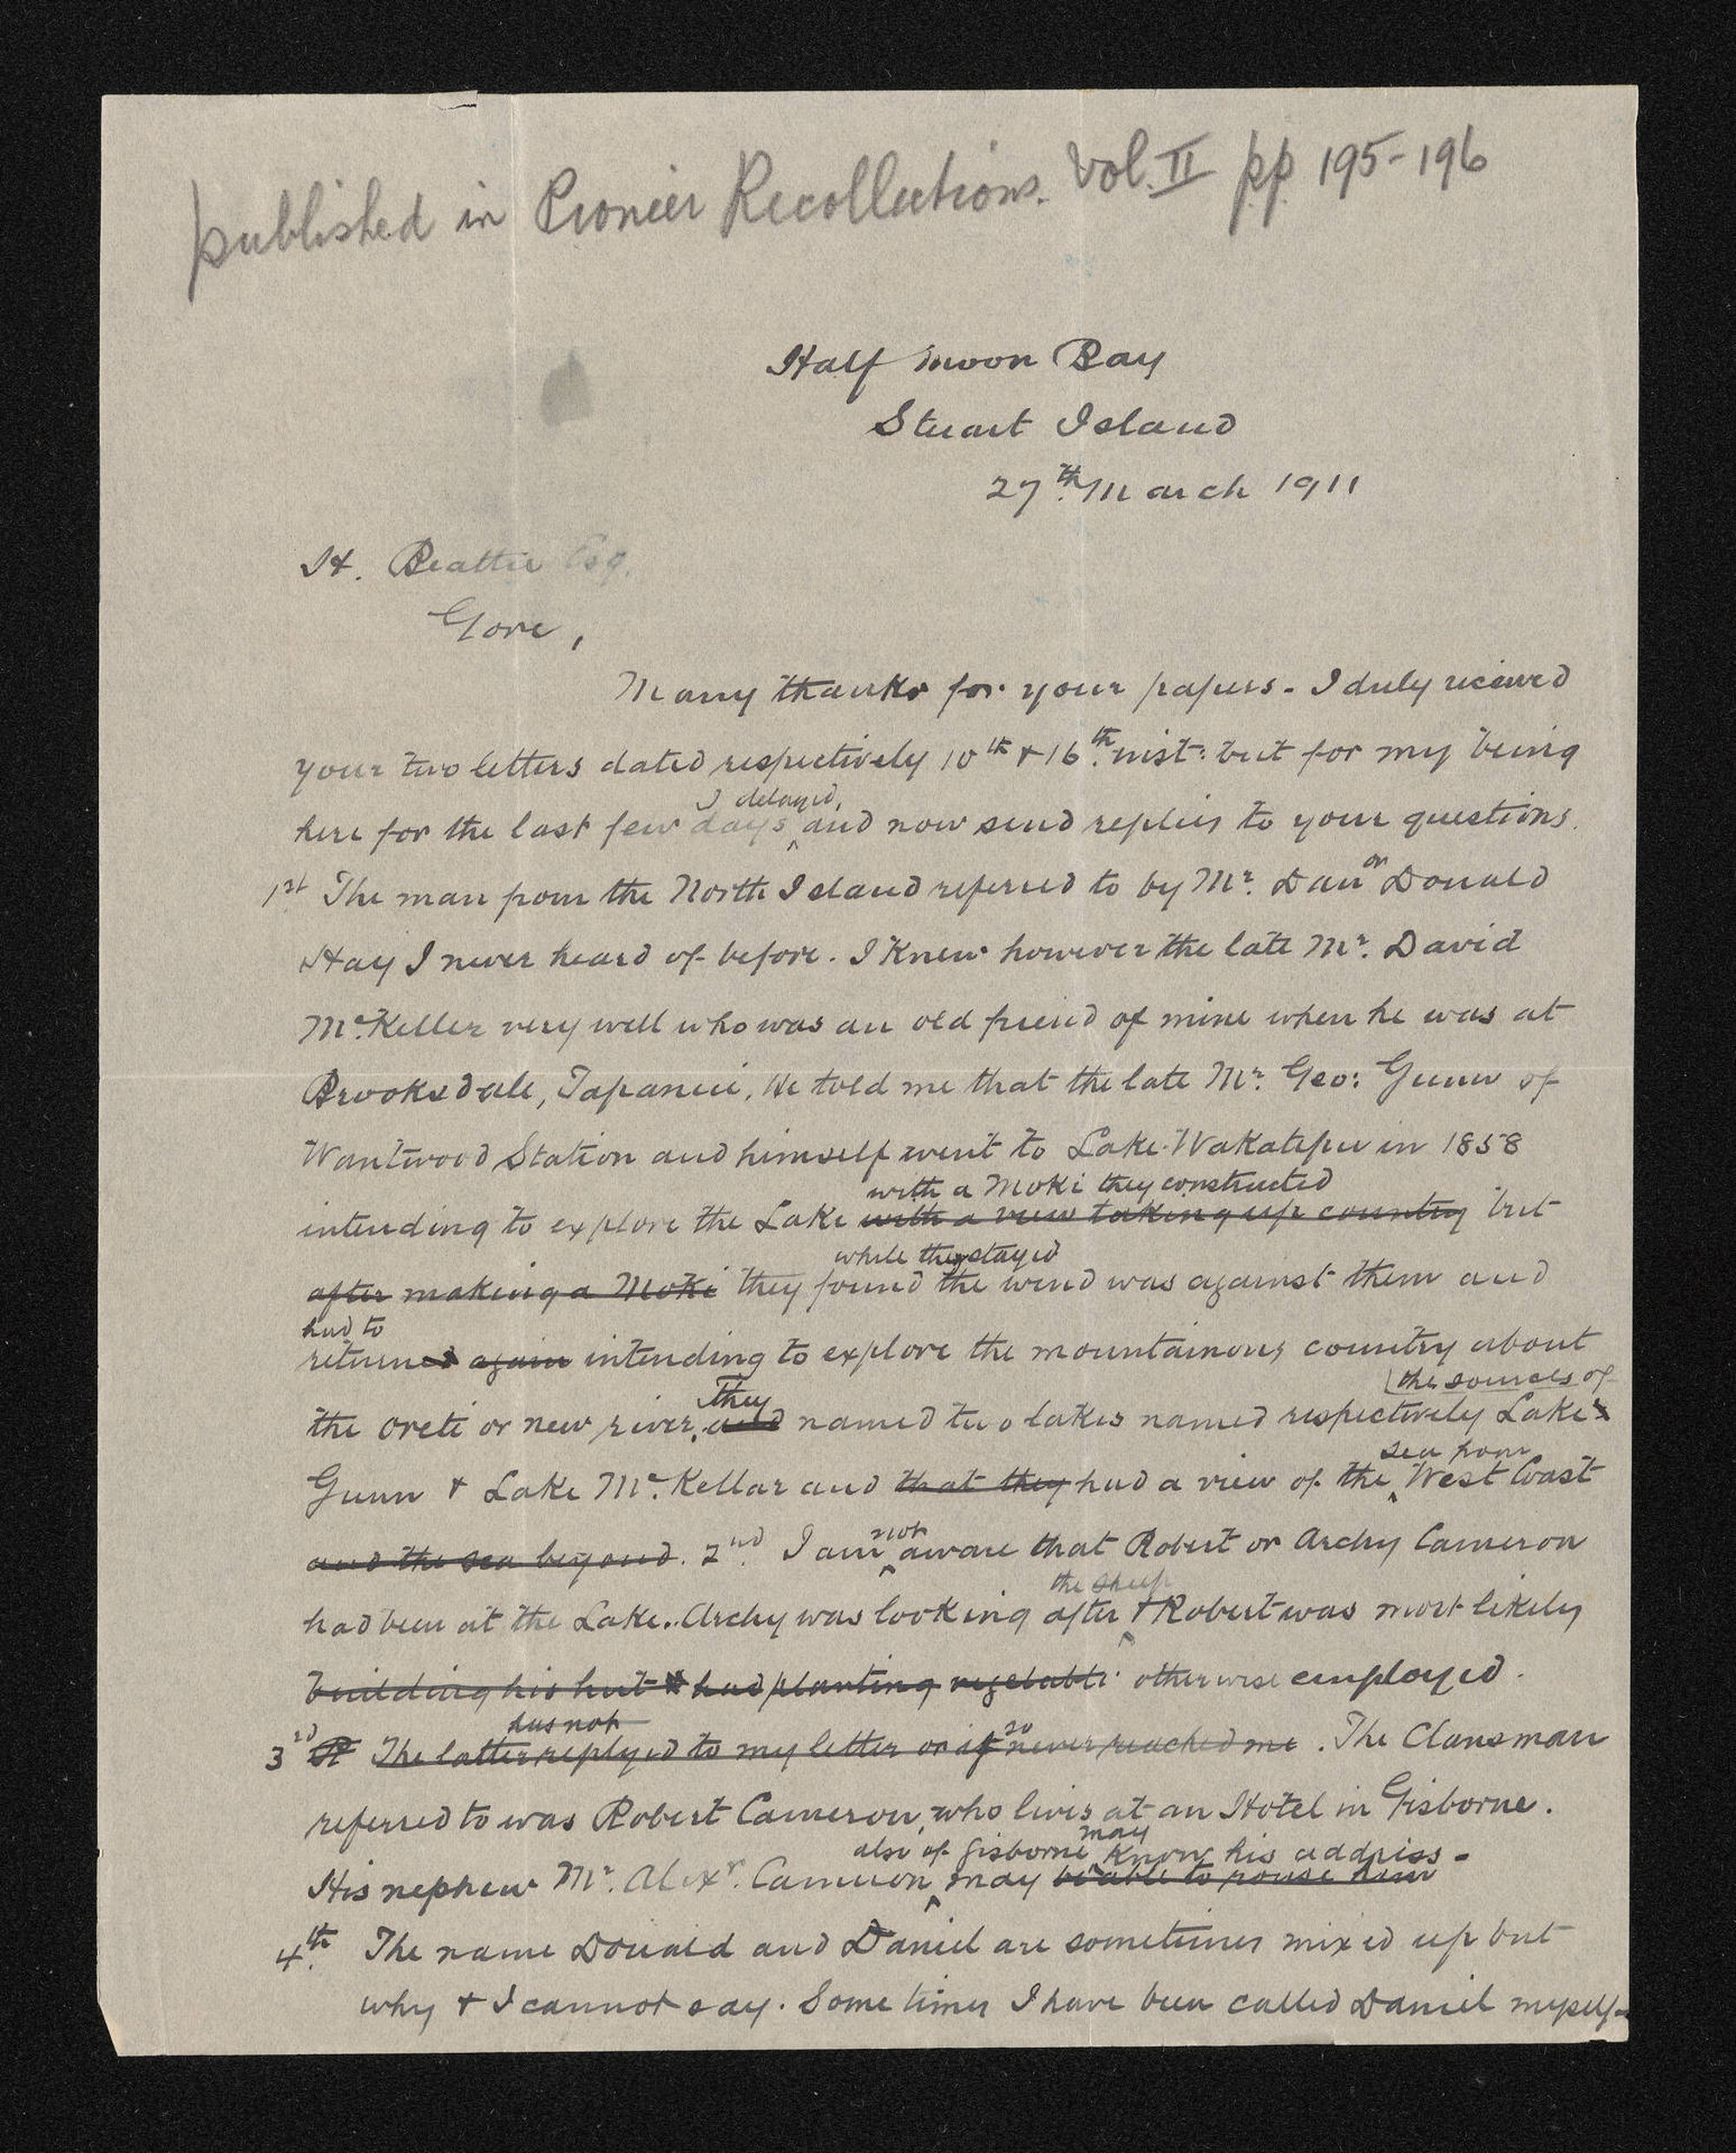 published in Pioneer Recollections. Vol. II pp 195-196
Half moon Bay
Stuart Island
27th. March 1911
H. Beattie Esq.
Gore,
Many thanks for your papers - I duly received
your two letters dated respectively 10th & 16th. inst: but for my being
I delayed,
here for the last few days and now send replies to your questions.
1st The man from the North Island referred to by Mr. Dan or Donald
Hay I never heard of before. I Knew however the late Mr. David
Mc.Keller very well who was an old friend of mine when he was at
Brooksdale, Tapanui, He told me that the late Mr. Geo: Gunn of
Wantwood Station and himself went to Lake Wakatipu in 1858
with a Moki they constructed
intending to explore the Lake with a view taking up country but
while they stayed
after making a Moki they found the wind was against them and
had to
returned again intending to explore the mountainous country about
the sources of
They
the Oreti or new river, and named two lakes named respectively Lakes
sea from
Gunn & Lake Mc.Kellar and that they had a view of the West Coast
not
and the sea beyond. 2nd. I am aware that Robert or Archy Cameron
the sheep
had been at the Lake. Archy was looking after & Robert was most likely
building his hut & had planting vegetable otherwise employed.
has not
3rd The latter replyed to my letter or if so never reached me. The Clansman
referred to was Robert Cameron, who lives at an Hotel in Gisborne.
also of Gisborne may Know his address -
His nephew Mr. Alexr. Cameron, may be able to rouse him
4th. The name Donald and Daniel are sometimes mixed up but
why & I cannot say. Some times I have been called Daniel myself-